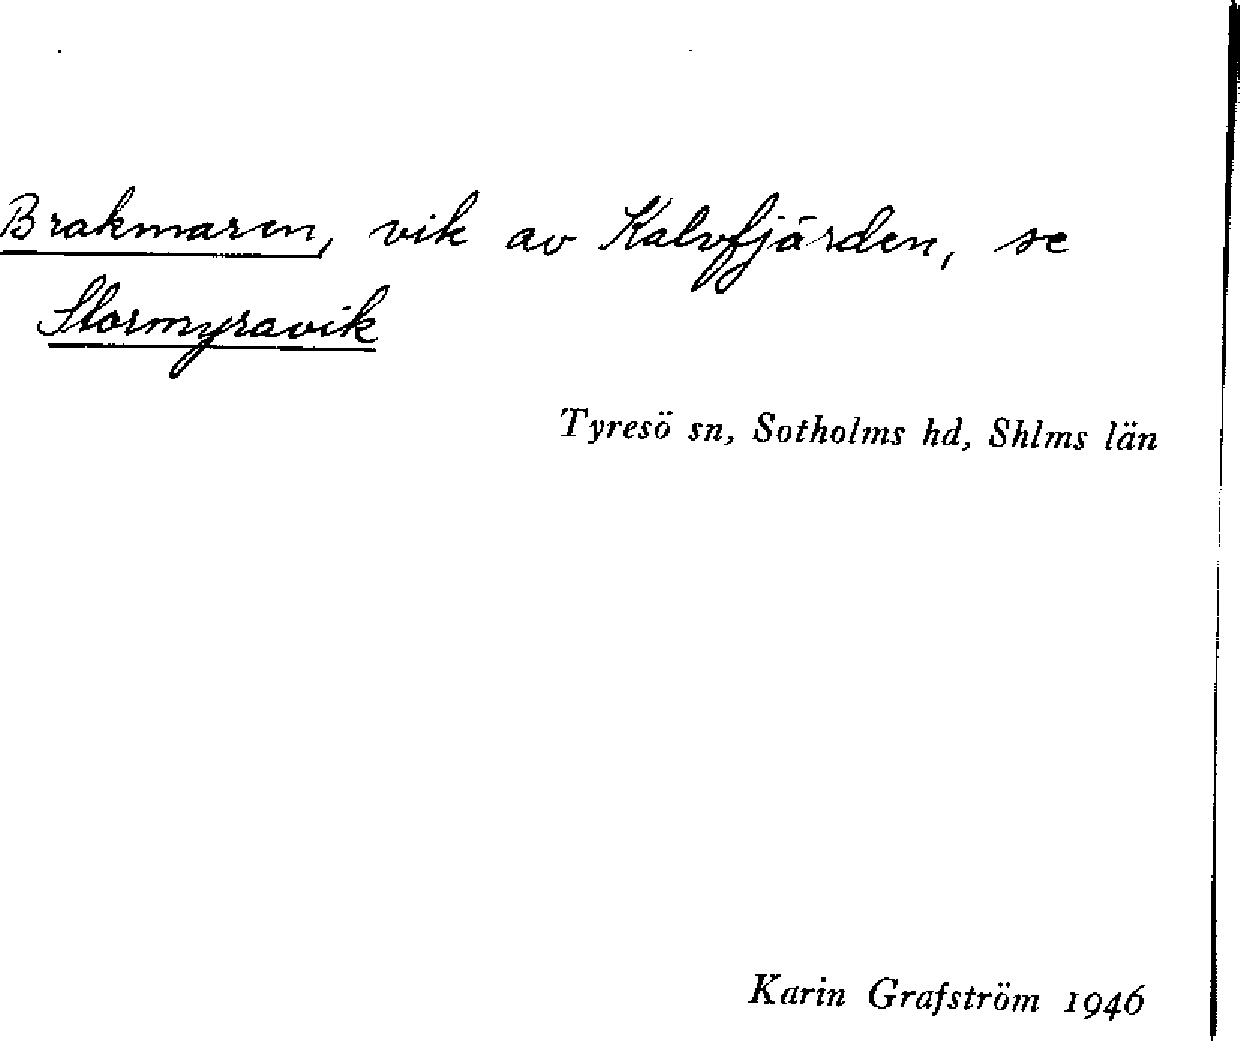 Brakmaren, vik av Kalvfjärden, se
Stormyravik
Tyresö sn, Sotholms hd, Shlms län
Karin Grafström 1946